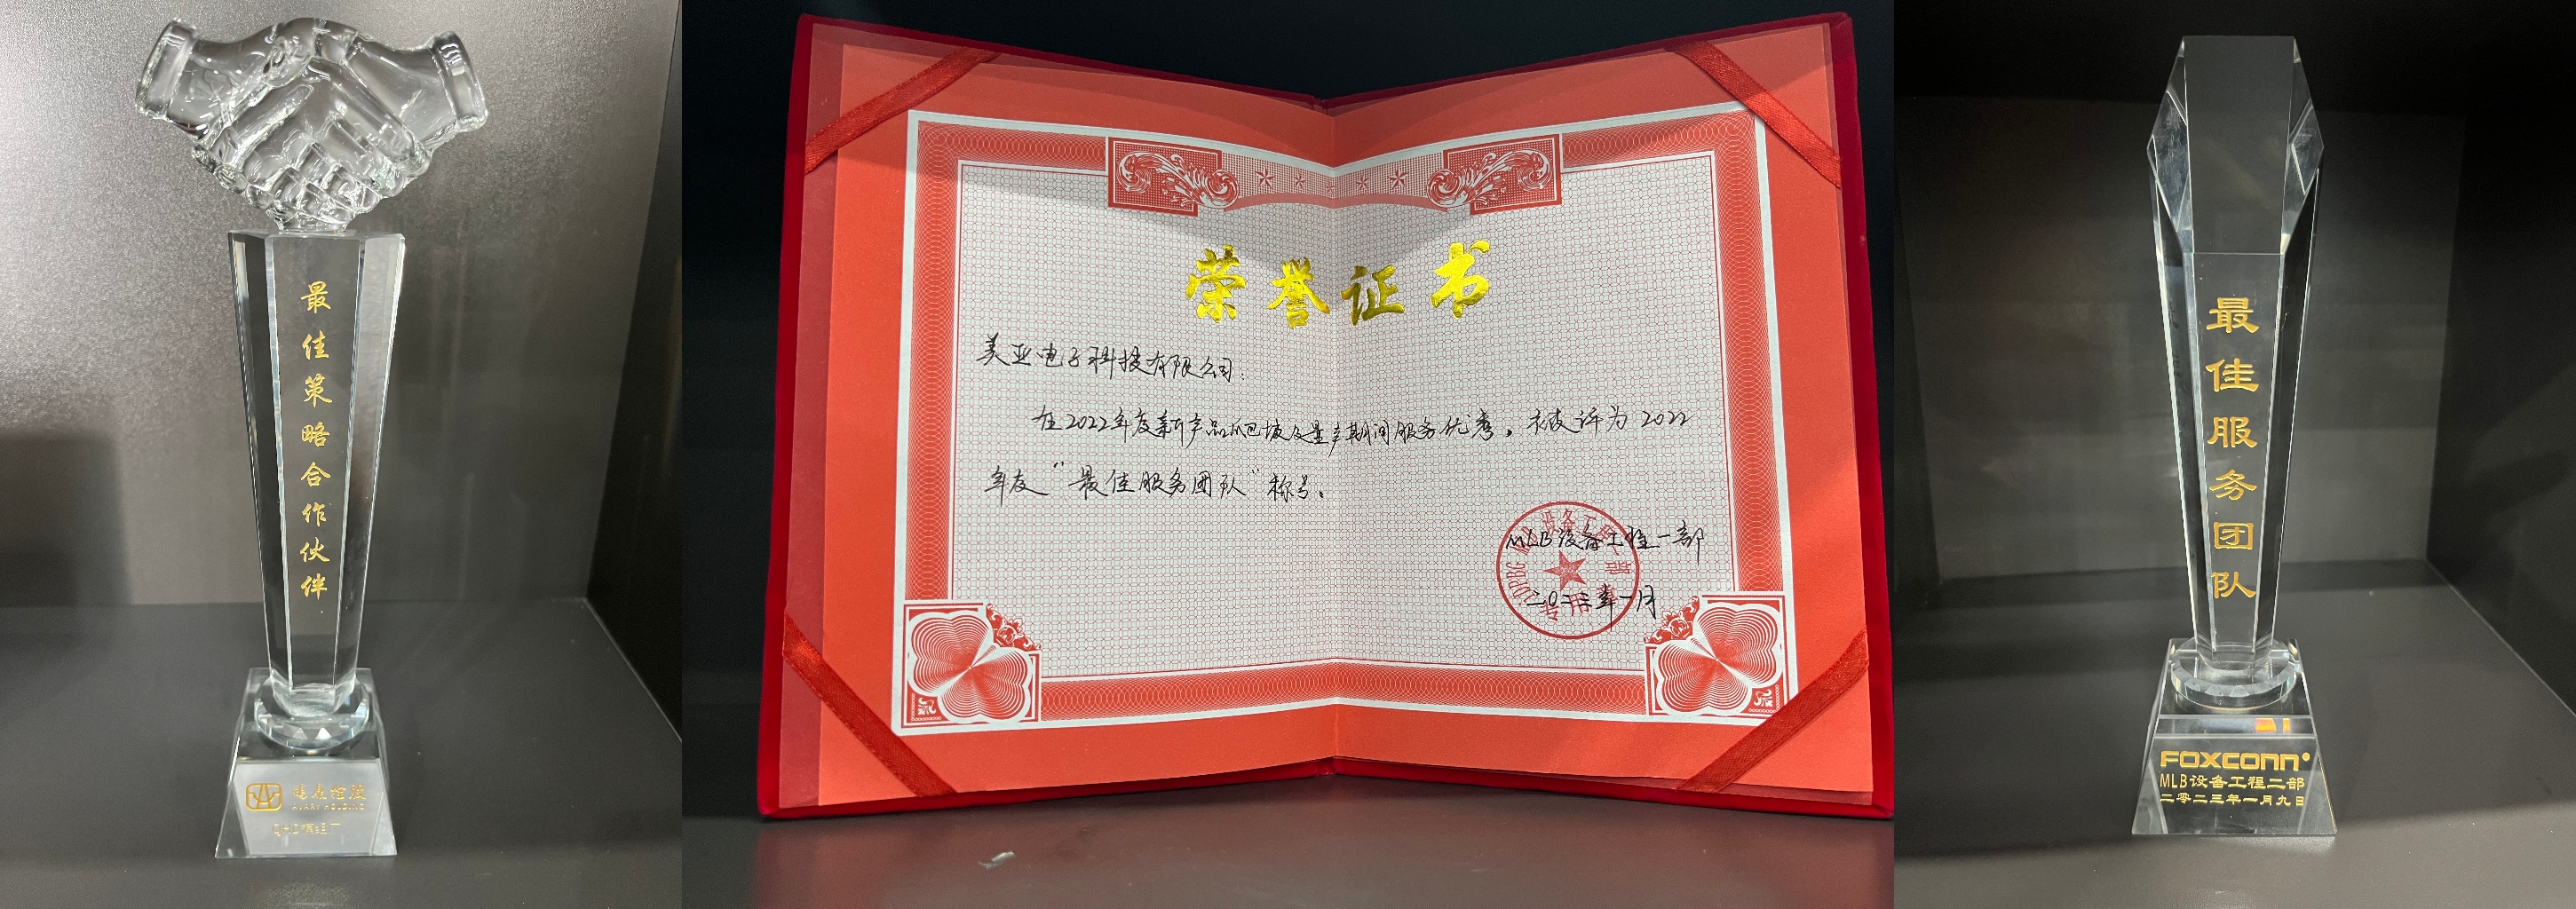 最佳策略合作伙伴
鹏鼎控股
AVARY HOLDING
荣誉证书
美亚电子科技有限公司:
在2022年度新产品爬坡及量产期间服务优秀，被评为2022
年度“最佳服务团队”称号。
MLB设备工程一部
二〇二三年一月
最佳服务团队
FOXCONN
MLB设备工程二部
二零二三年一月九日